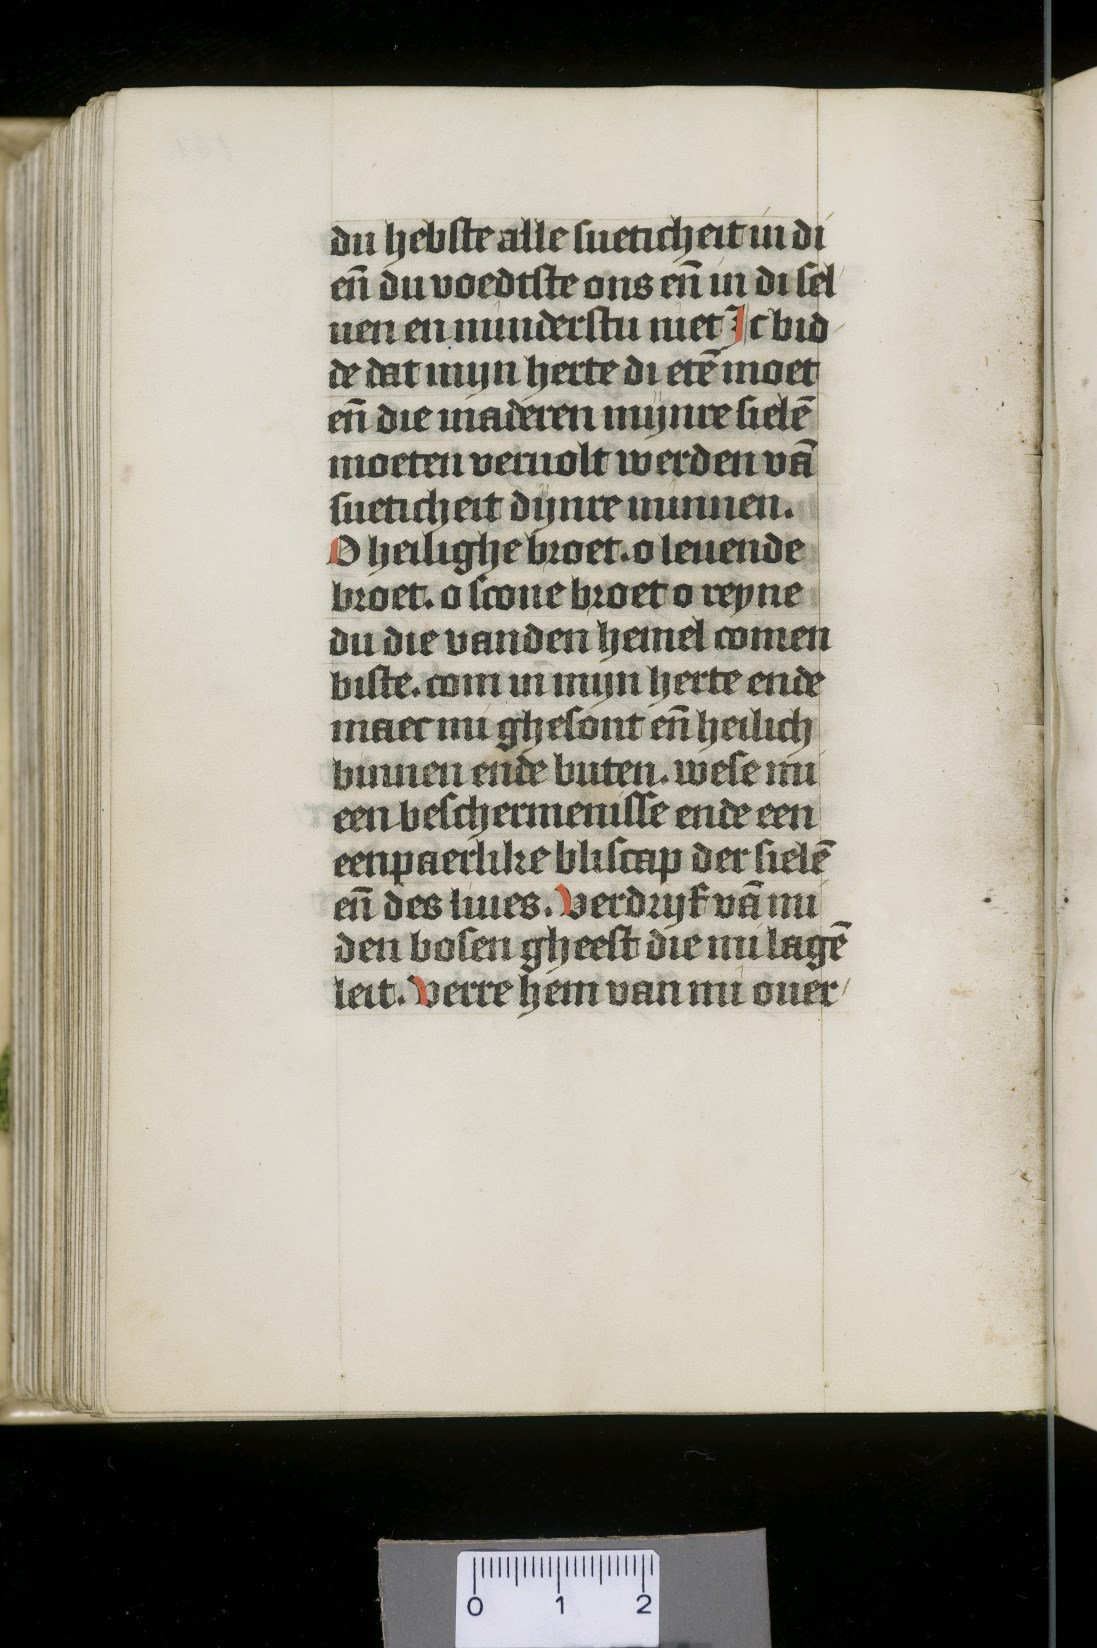 du hebste alle sueticheit in di
eñ du voedtste ons eñ in di sel
uen en minderstu niet Ic bid
de dat mijn herte di etē moet
eñ die inaderen mijnre sielē
moeten veruolt werden vā
sueticheit dijnre minnen.
O heilighe broet. o leuende
broet. o scone broet o reyne
du die vanden hemel comen
biste. com in mijn herte ende
maec mi ghesont eñ heilich
binnen ende buten. wese mi
een beschermenisse ende een
eenpaerlike bliscap der sielē
eñ des liues. Verdrijf vā mi
den bosen gheest die mi lagē
leit. Verre hem van mi ouer
0 1 2